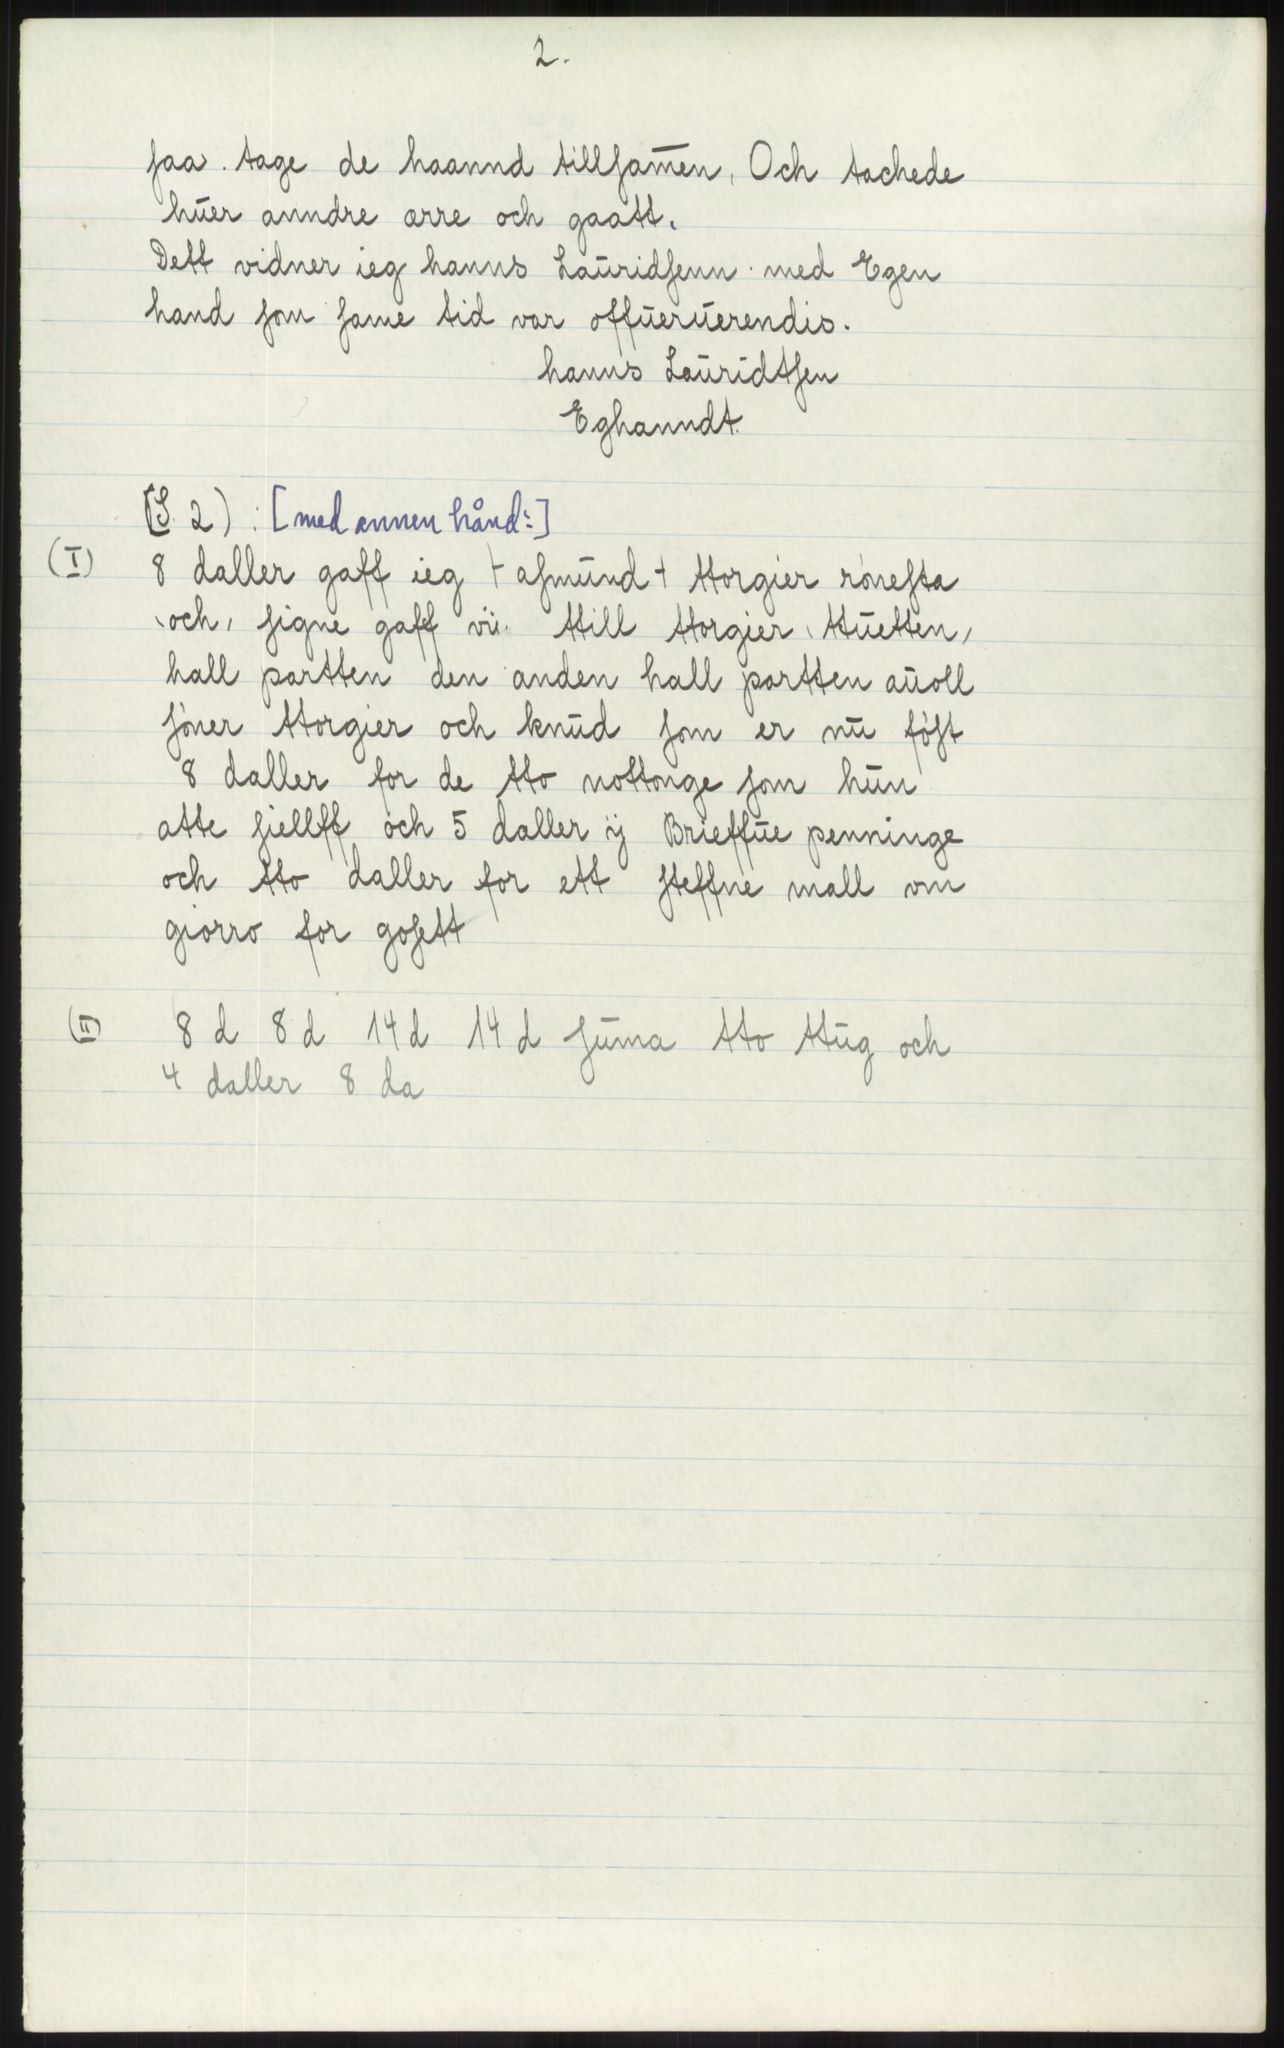 2.
saa. tage de haannd tillsam̄en, Och tachede
hŭer anndre ærre och gaatt.
Dett vidner ieg hanns Laŭridsenn. med Egen
hand som same tid var offŭerŭerendis.
hanns Laŭridtsen
Eghanndt.
(S. 2): [med annen hånd:]
(I) 8 daller gaff ieg + asmŭnd + ttorgier rónesta
och, signe gaff vii. ttill ttorgier, ttŭetten,
hall partten den anden hall partten aŭoll
sóner ttorgier och knŭd som er nŭ fóst
8 daller for de tto nottonge som hŭn
atte siellff och 5 daller ÿ Brieffŭe penninge
och tto daller for ett steffne mall om
giorro for gosett
(II) 8 d 8 d 14 d 14 d sŭma tto ttŭg och
4 daller 8 da